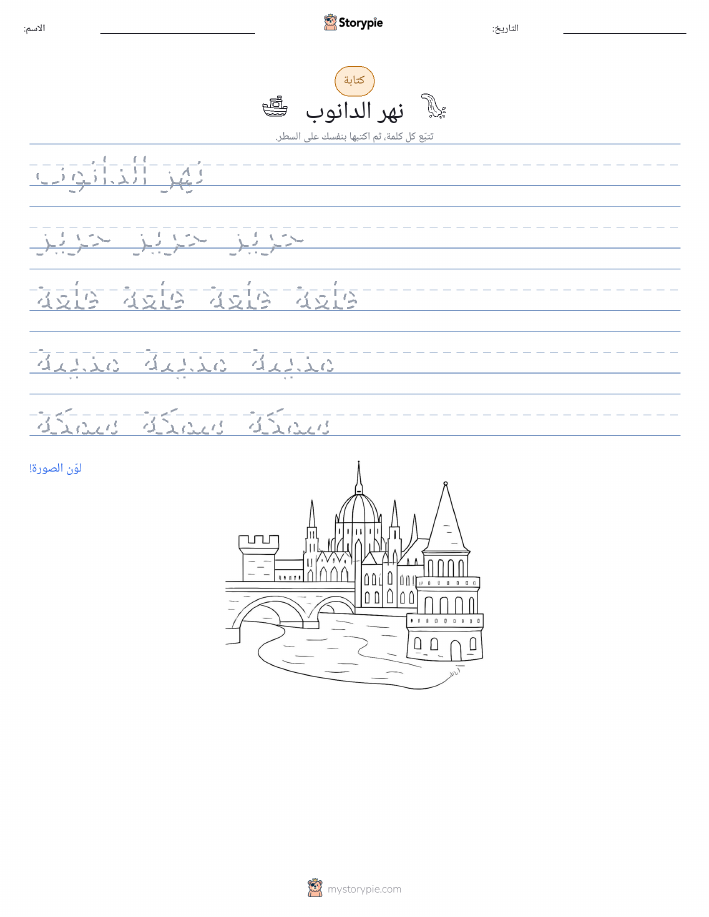 الاسم:
Storypie
التاريخ:
كتابة
نهر الدانوب
تتبّع كل كلمة، ثم اكتبها بنفسك على السطر.
نهر الدانوب
خريبر خريبر خريبر
قلعة قلعة قلعة قلعة
مدينة مدينة مدينة
سمكة سمكة سمكة
لوّن الصورة!
mystorypie.com